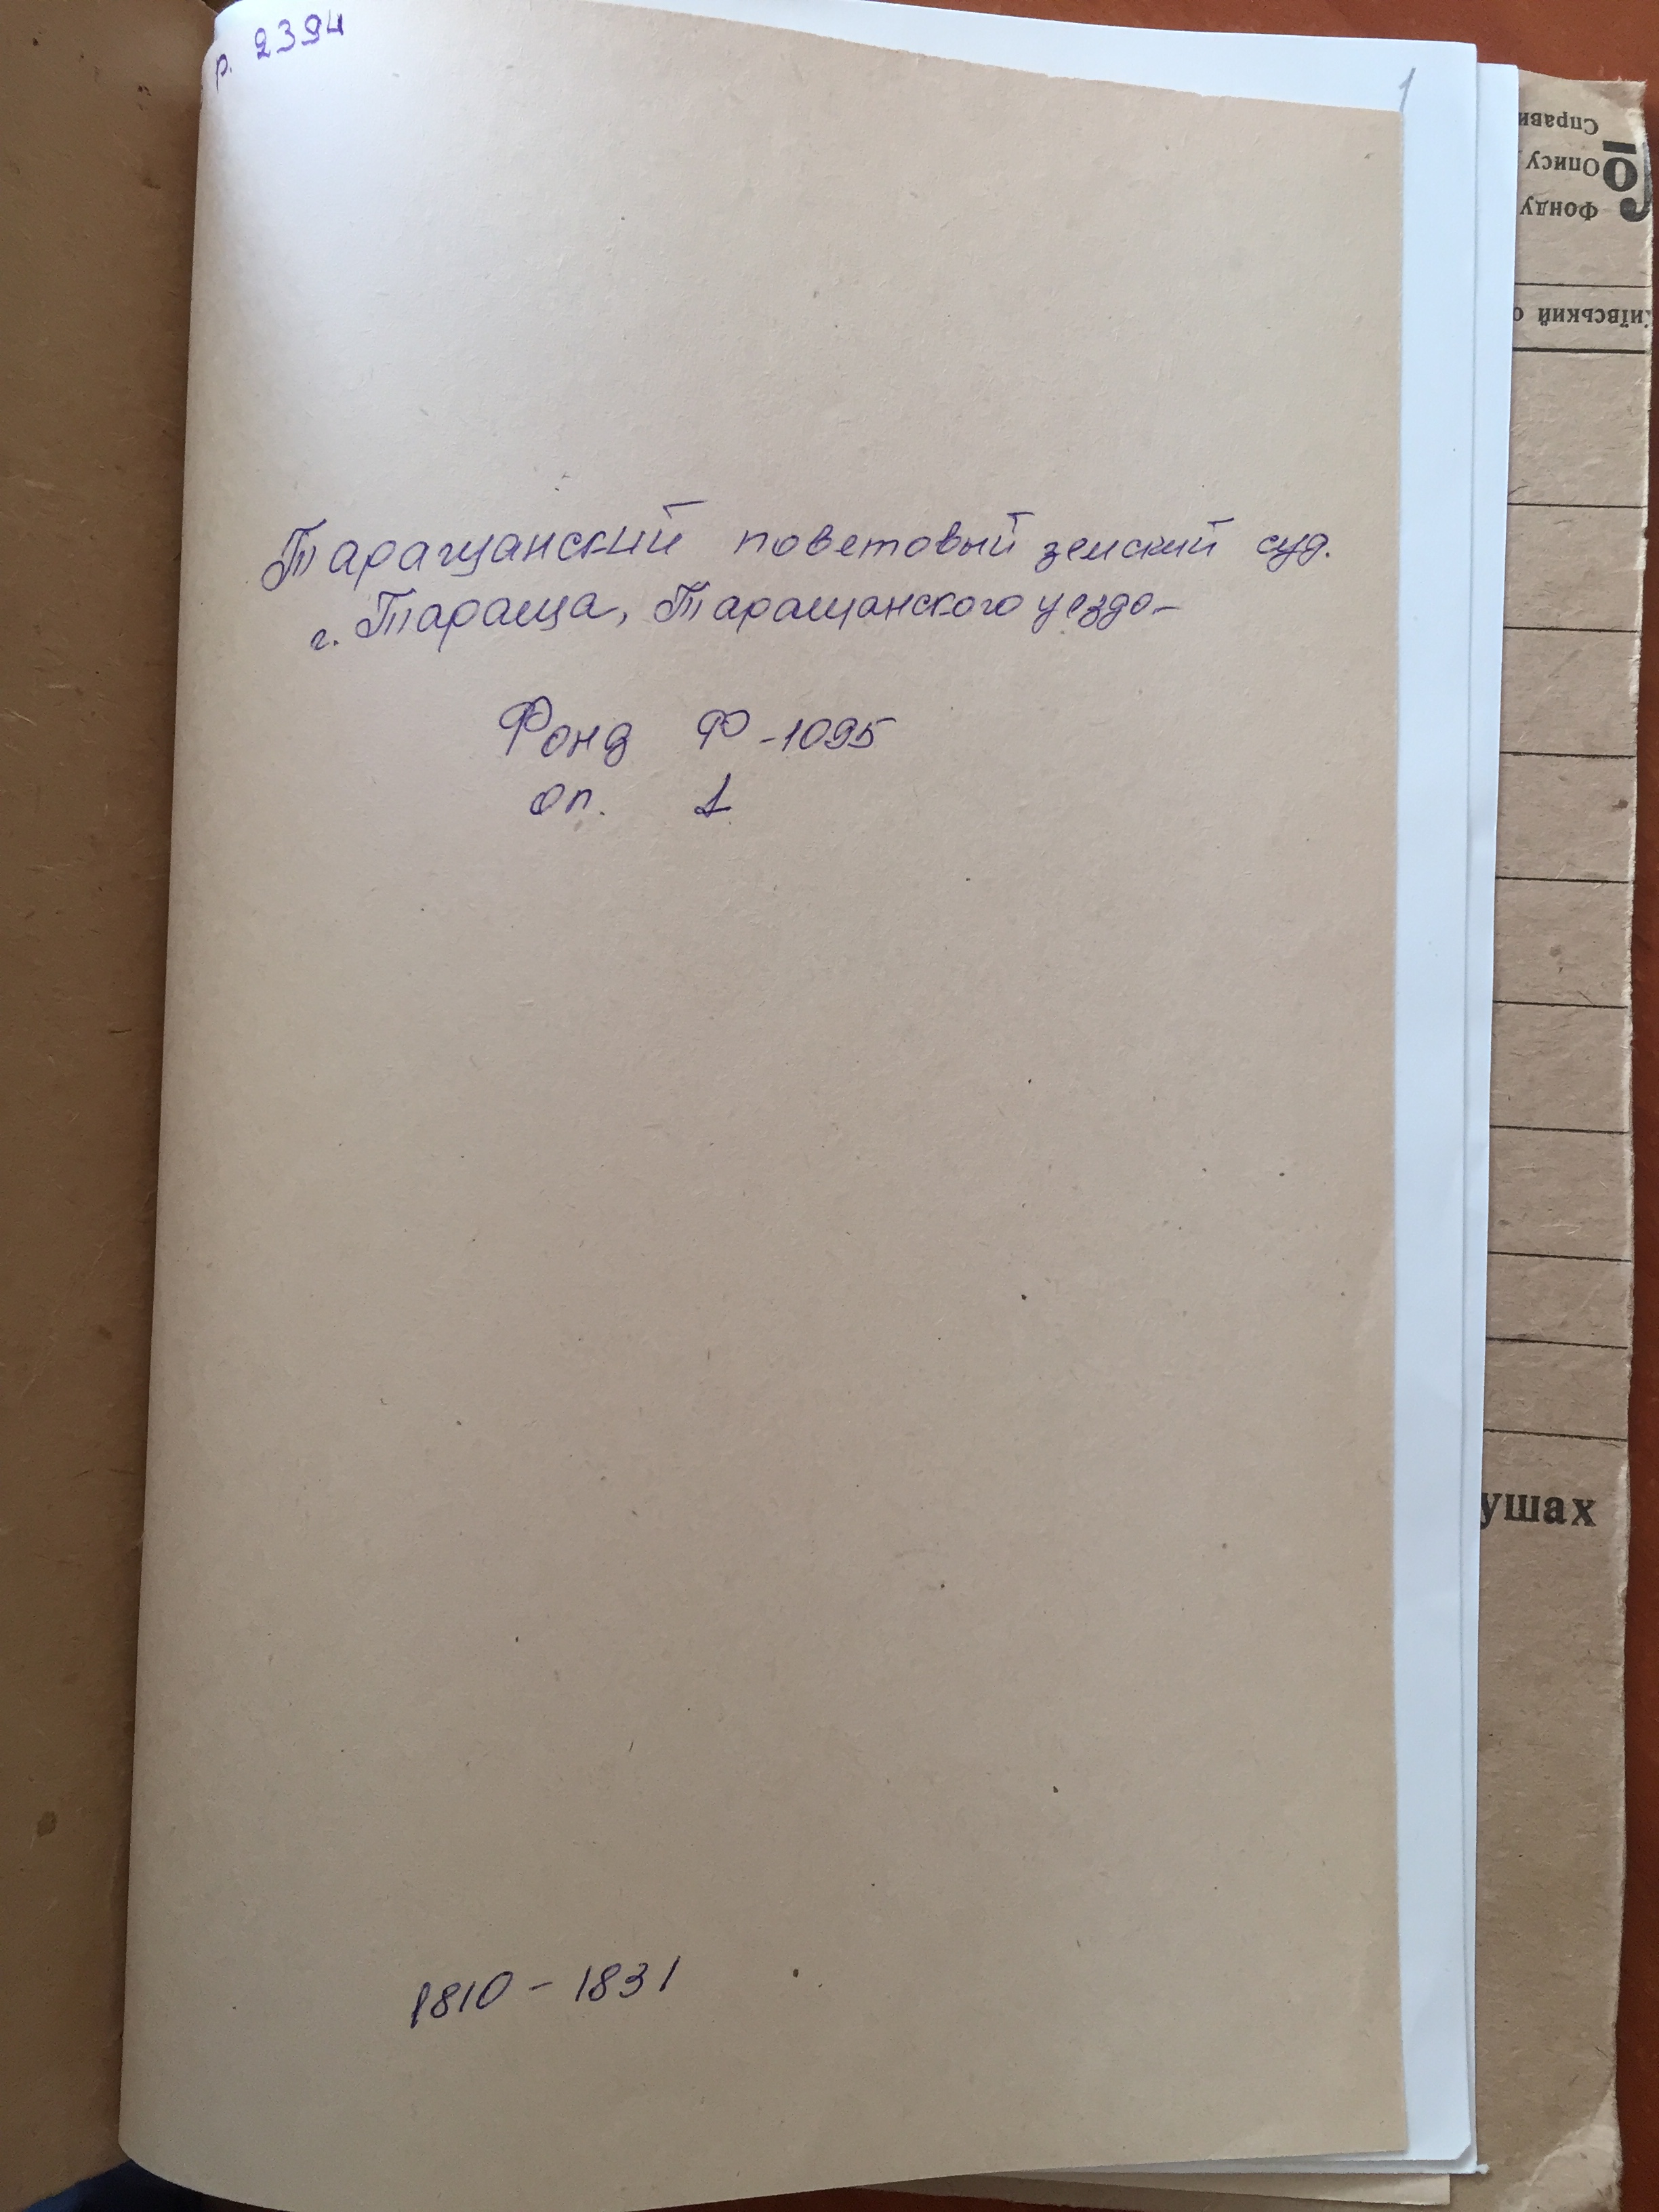 р. 2394
1
Таращанский поветовый земский суд.
г. Тараща, Таращанского уезда
Фонд Ф-1095
оп. 1
1810-1831
Справи
Опису
Фонду
ушах